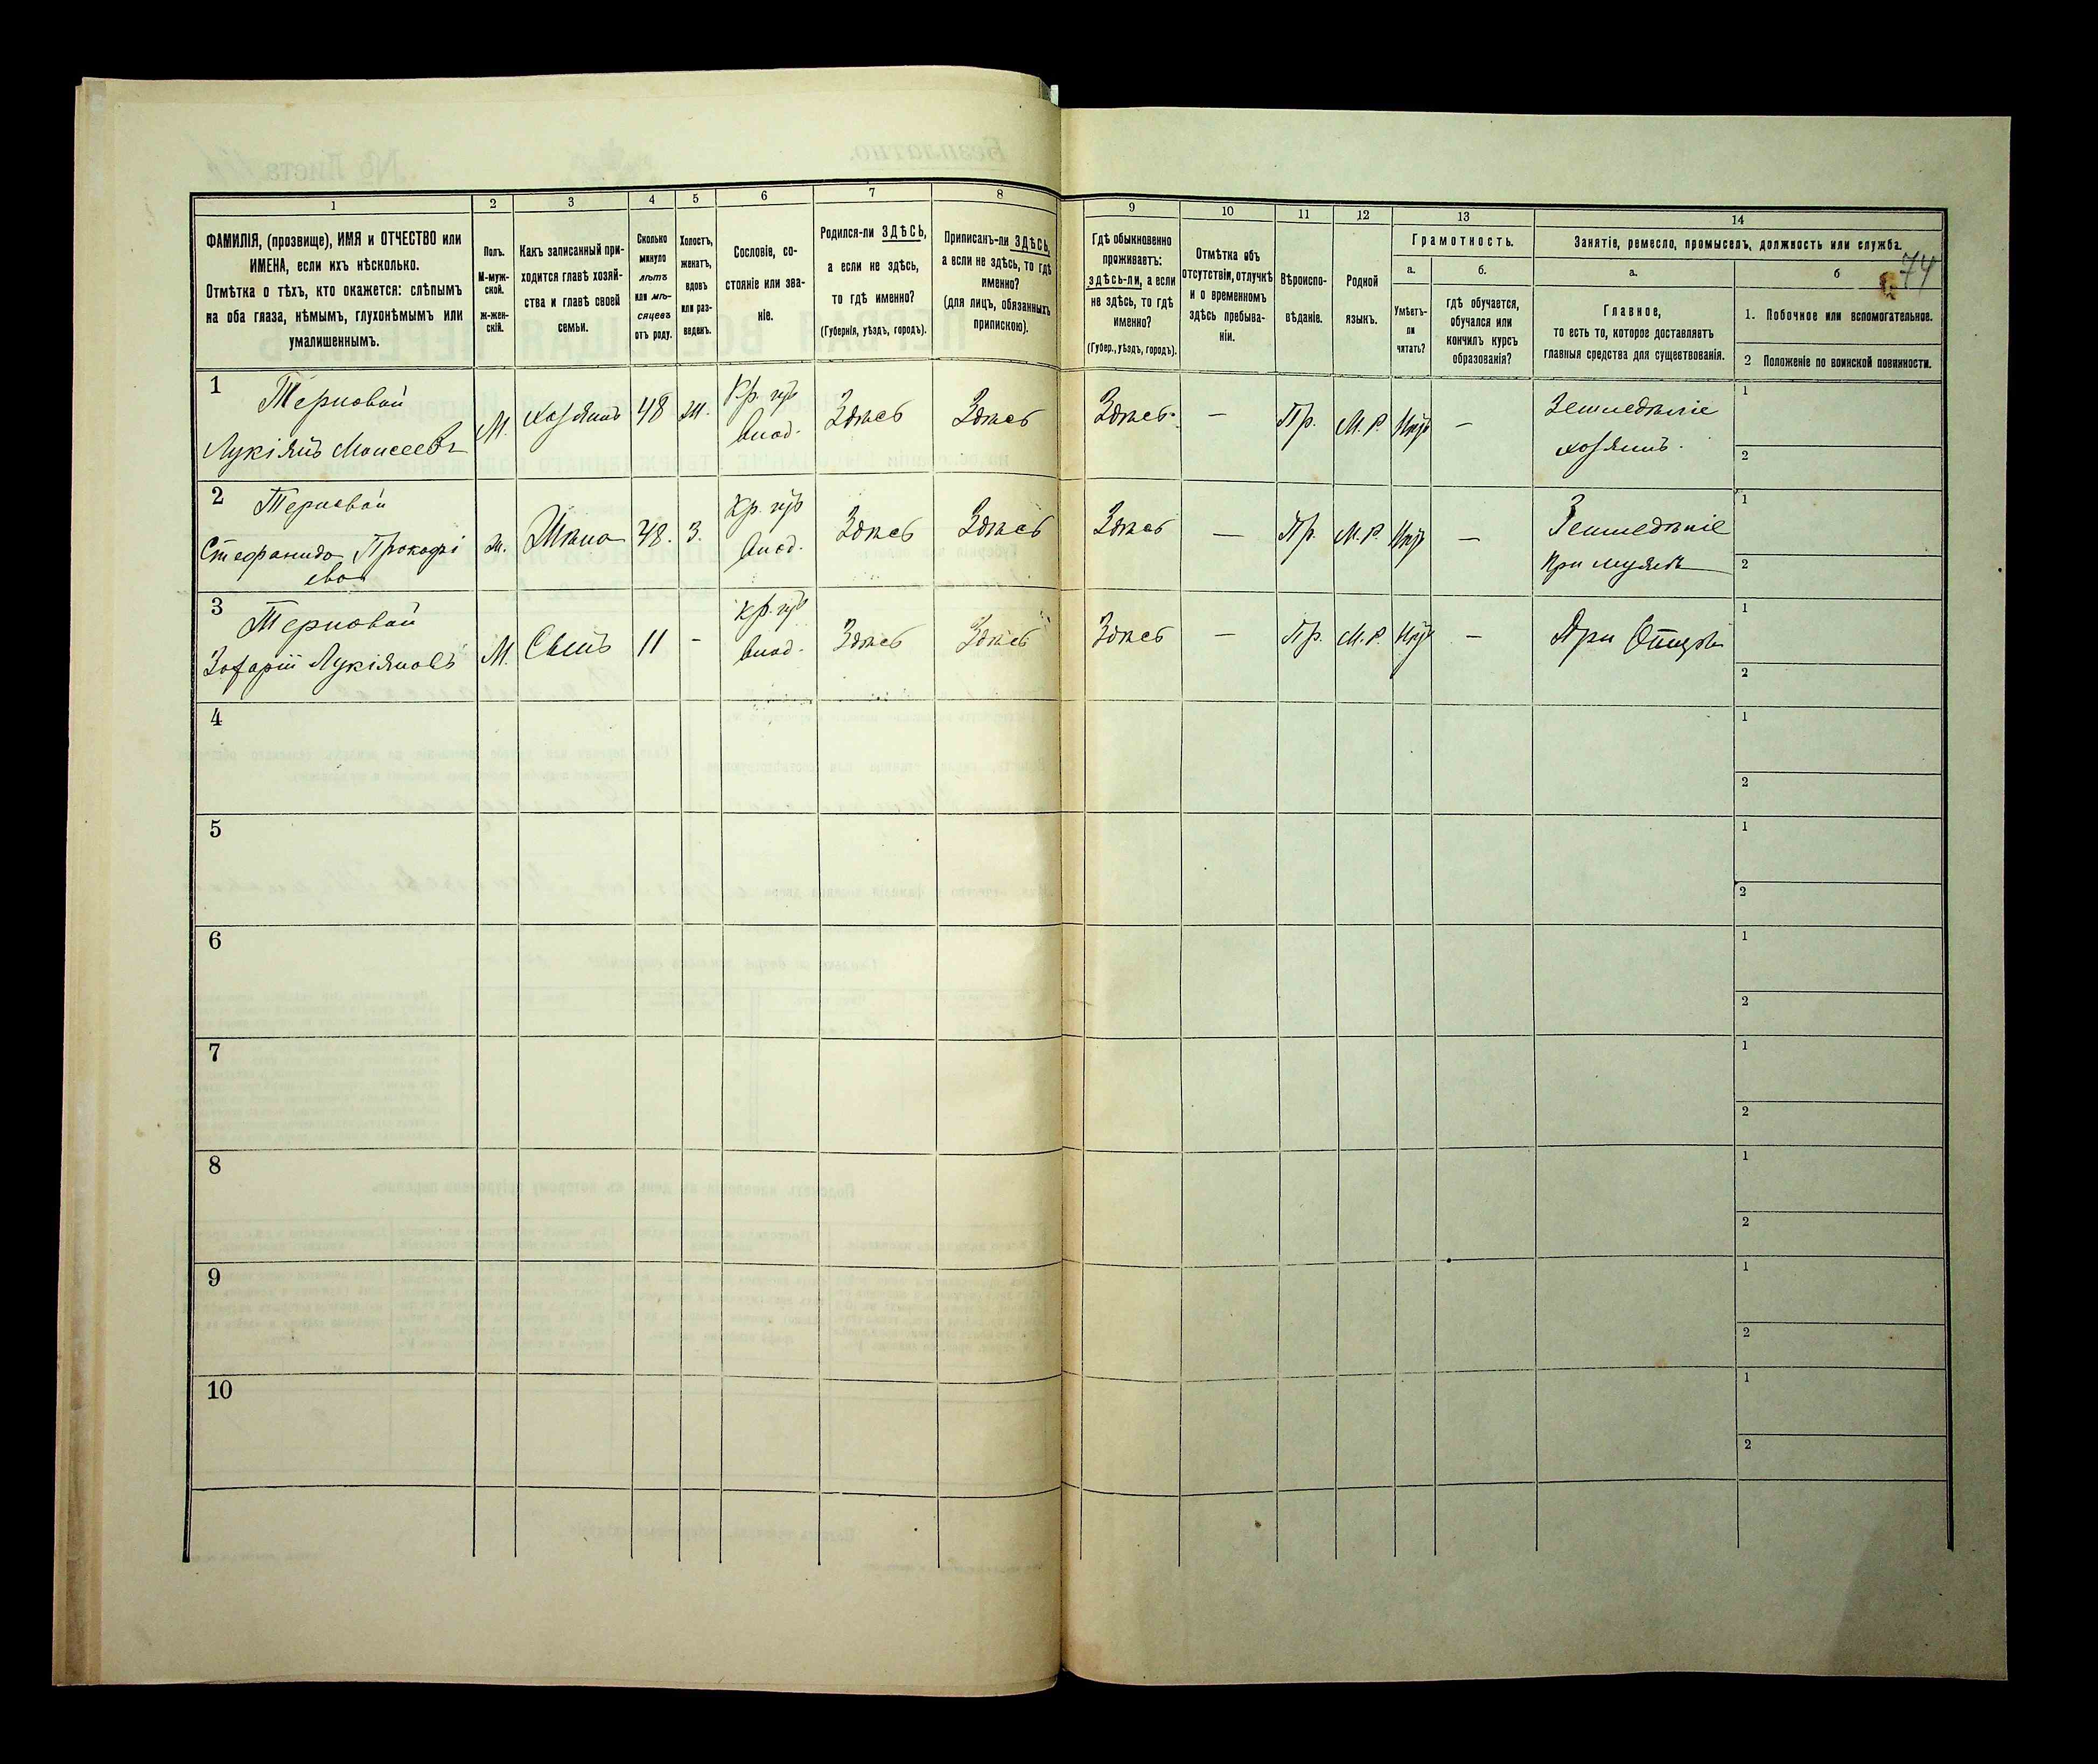 1
2
3
4
5
6
7
8
9
10
11
12
13
14
ФАМИЛІЯ, (прозвище), ИМЯ и ОТЧЕСТВО или
ИМЕНА, если ихъ нѣсколько.
Отмѣтка о тѣхъ, кто окажется: слѣпымъ
на оба глаза, нѣмымъ, глухонѣмымъ или
умалишеннымъ.
Полъ.
М-муж-
ской.
Ж-жен-
скій.
Какъ записанный при-
ходится главѣ хозяй-
ства и главѣ своей
семьи.
Сколько
минуло
лѣтъ
или мѣ-
сяцевъ
отъ роду.
Холостъ,
женатъ,
вдовъ
или раз-
веденъ.
Сословіе, со-
стояніе или зва-
ніе.
Родился-ли ЗДѢСЬ,
а если не здѣсь,
то гдѣ именно?
(Губернія, уѣздъ, городъ).
Приписанъ-ли ЗДѢСЬ,
а если не здѣсь, то гдѣ
именно?
(для лицъ, обязанныхъ
припискою).
Гдѣ обыкновенно
проживаетъ:
здѣсь-ли, а если
не здѣсь, то гдѣ
именно?
(Губер., уѣздъ, городъ).
Отмѣтка объ
отсутствіи, отлучкѣ
и о временномъ
здѣсь пребыва-
ніи.
Вѣроиспо-
вѣданіе.
Родной
языкъ.
Грамотность.
а.
Умѣетъ-
ли
читать?
б.
гдѣ обучается,
обучался или
кончилъ курсъ
образованія?
Занятіе, ремесло, промыселъ, должность или служба.
74
а.
Главное,
то есть то, которое доставляетъ
главныя средства для существованія.
б
1. Побочное или вспомогательное.
2 Положеніе по воинской повинности.
1 Терновой
Лукіянъ Моисеевъ
М. хозяинъ 48 ж. Кр. Здѣсь Здѣсь Здѣсь — Пр. М. Р. —
Земледѣліе
хозяинъ.
1
2
2 Терновой
Стефанида Прокофі
ева
ж. Жена 48. З. Кр. Здѣсь Здѣсь Здѣсь — Пр. М. Р. —
Земледѣліе
При мужѣ
1
2
3 Терновой
Захарій Лукіяновъ
М. Сынъ 11 - Кр. Здѣсь Здѣсь Здѣсь — Пр. М. Р. —
При Отцѣ
1
2
4
1
2
5
1
2
6
1
2
7
1
2
8
1
2
9
1
2
10
1
2